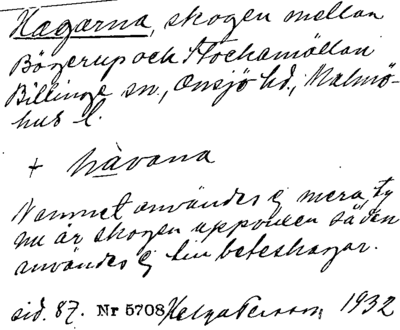 Hagarna, skogen mellan
Bögerup och Stockamöllan
Billinge sn., Onsjö hd., Malmö-
hus l.
+ hàvana
Namnet användes ej mera, ty
nu är skogen uppvuxen så den
användes ej till beteshagar.
sid. 87. Nr 5708 Helga Persson, 1932